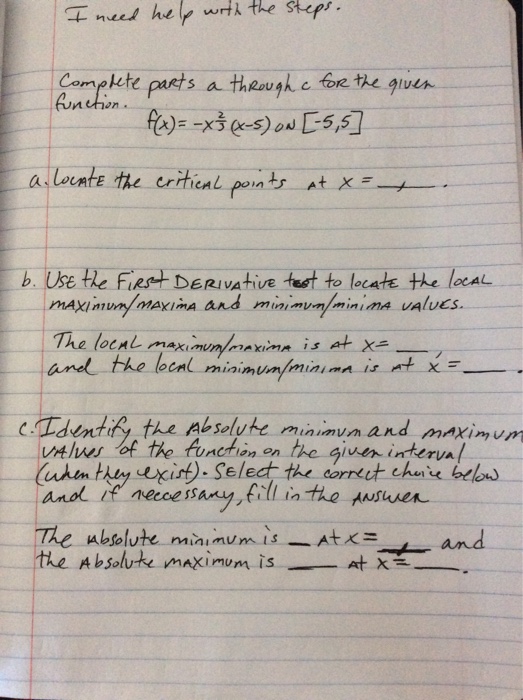 I need help with the steps.
Complete parts a through c for the given
function.
f(x) = -x^(2/3) (x-5) on [-5,5]
a. Locate the critical points at x = _,_.
b. Use the First Derivative test to locate the local
maximum/maxima and minimum/minima values.
The local maximum/maxima is at x= __,
and the local minimum/minima is at x = __.
c. Identify the absolute minimum and maximum
values of the function on the given interval
(when they exist). Select the correct choice below
and if neccessary, fill in the answer
The absolute minimum is _ at x= _, and
the absolute maximum is __ at x = __.